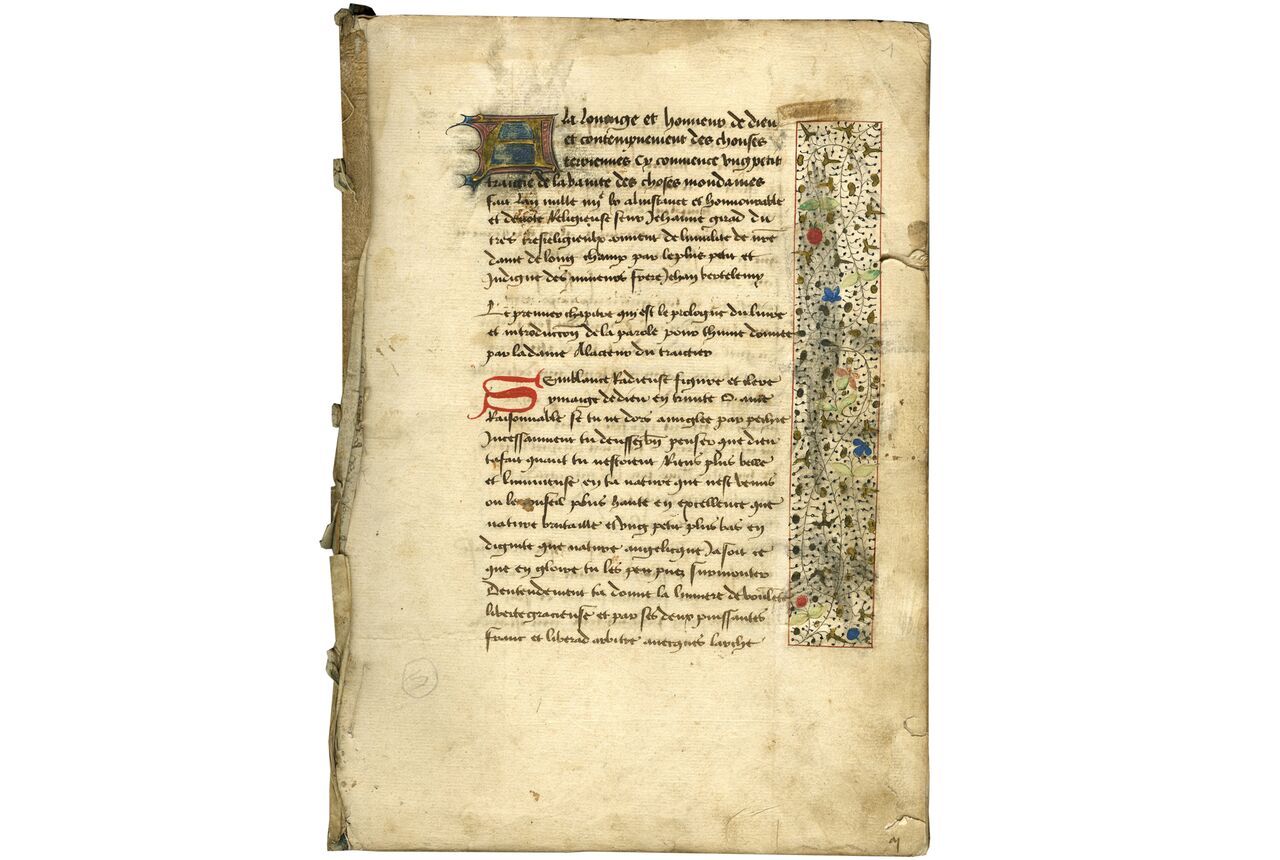 1
A la louenge et honneur de dieu
et contempnement des chouses
terriennes Cy commence ung petit
traictie de la vanite des choses mondaines
fait lan mille iiijc lx a linstance et honnourable
et devote Religieuse seur Jehanne girad du
tres tresreligieulx convent de lumilite de nre
dame de long champ par le plus petit et
Indigne des mineurs frere Jehan berthelemy
Le premier chapitre qui est le prologue du livre
et introduccon de la parole pour thime donnee
par la dame A lacteur du traictier
Semblance Radieuse figure et clere
ymaige de dieu en trinite O ame
Raisonnable se tu ne dors aveuglee par peche
Incessamment tu deusses bn penser que dieu
ta fait quant tu nestoient Riens plus belle
et lumineuse en ta nature que nest venus
ou le souleil plus haute en excellence que
nature brutaille et ung petit plus bas en
dignite que nature angelicque Ja soit ce
que en gloire tu les peu puez surmonter
Dentendement ta donne la lumiere de voulente
liberte gracieuse et par ses deux puissantes
franc et liberad arbitre avecques larche